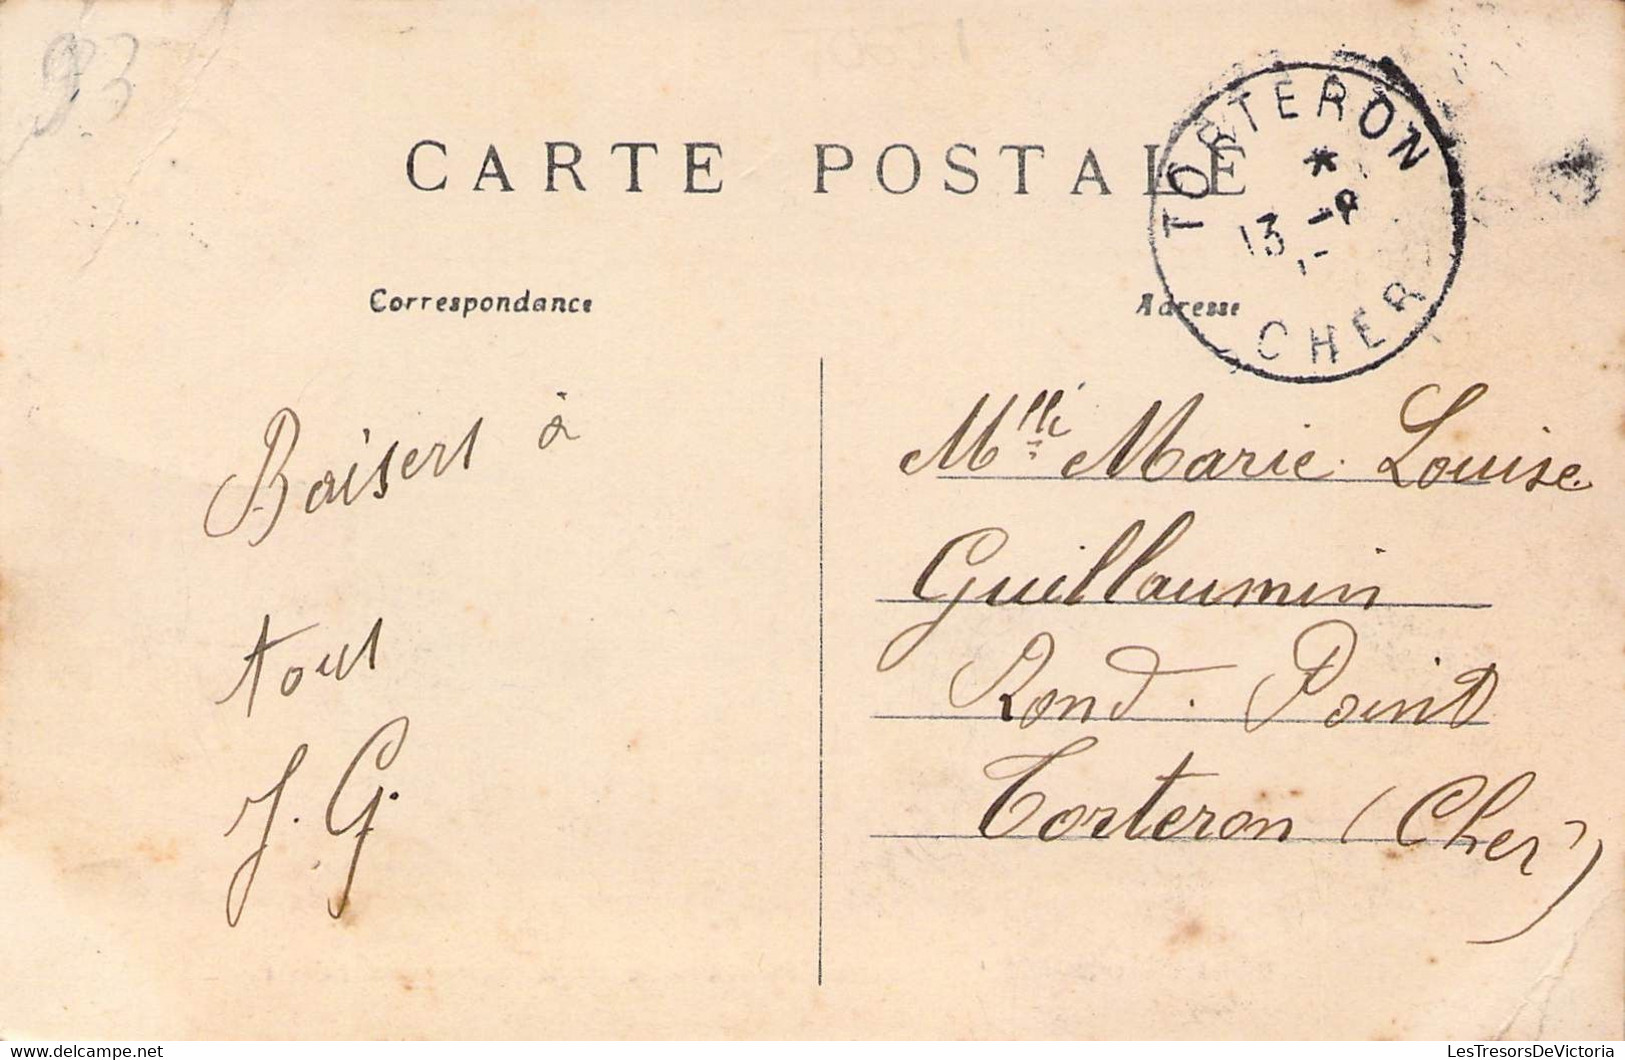 93
CARTE POSTALE
TORTERON
*
13 -8
CHER
Correspondance
Adresse
Baisers à
tous
J. G.
Mlle Marie Louise
Guillaumin
Rond. Point
Torteron (Cher)
LesTresorsDeVictoria